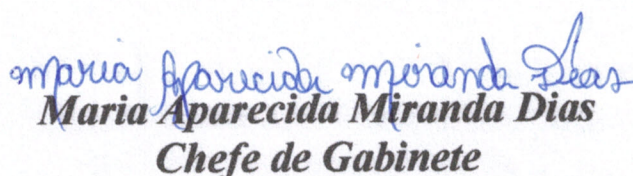 Maria Aparecida Miranda Dias
Maria Aparecida Miranda Dias
Chefe de Gabinete